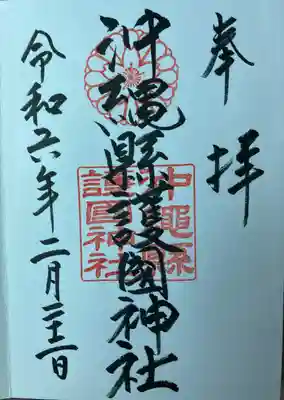 奉拝
沖縄縣護國神社
沖縄縣
護国神社
令和六年二月二十一日